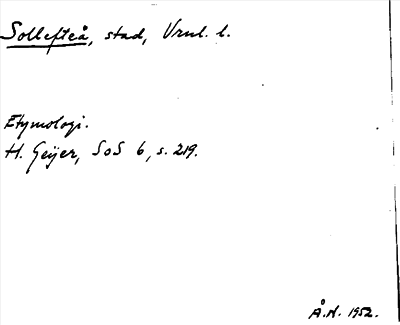 Sollefteå, stad, Vrnl. l.
Etymologi.
H. Geijer, SoS 6, s. 219.
Å.H. 1952.